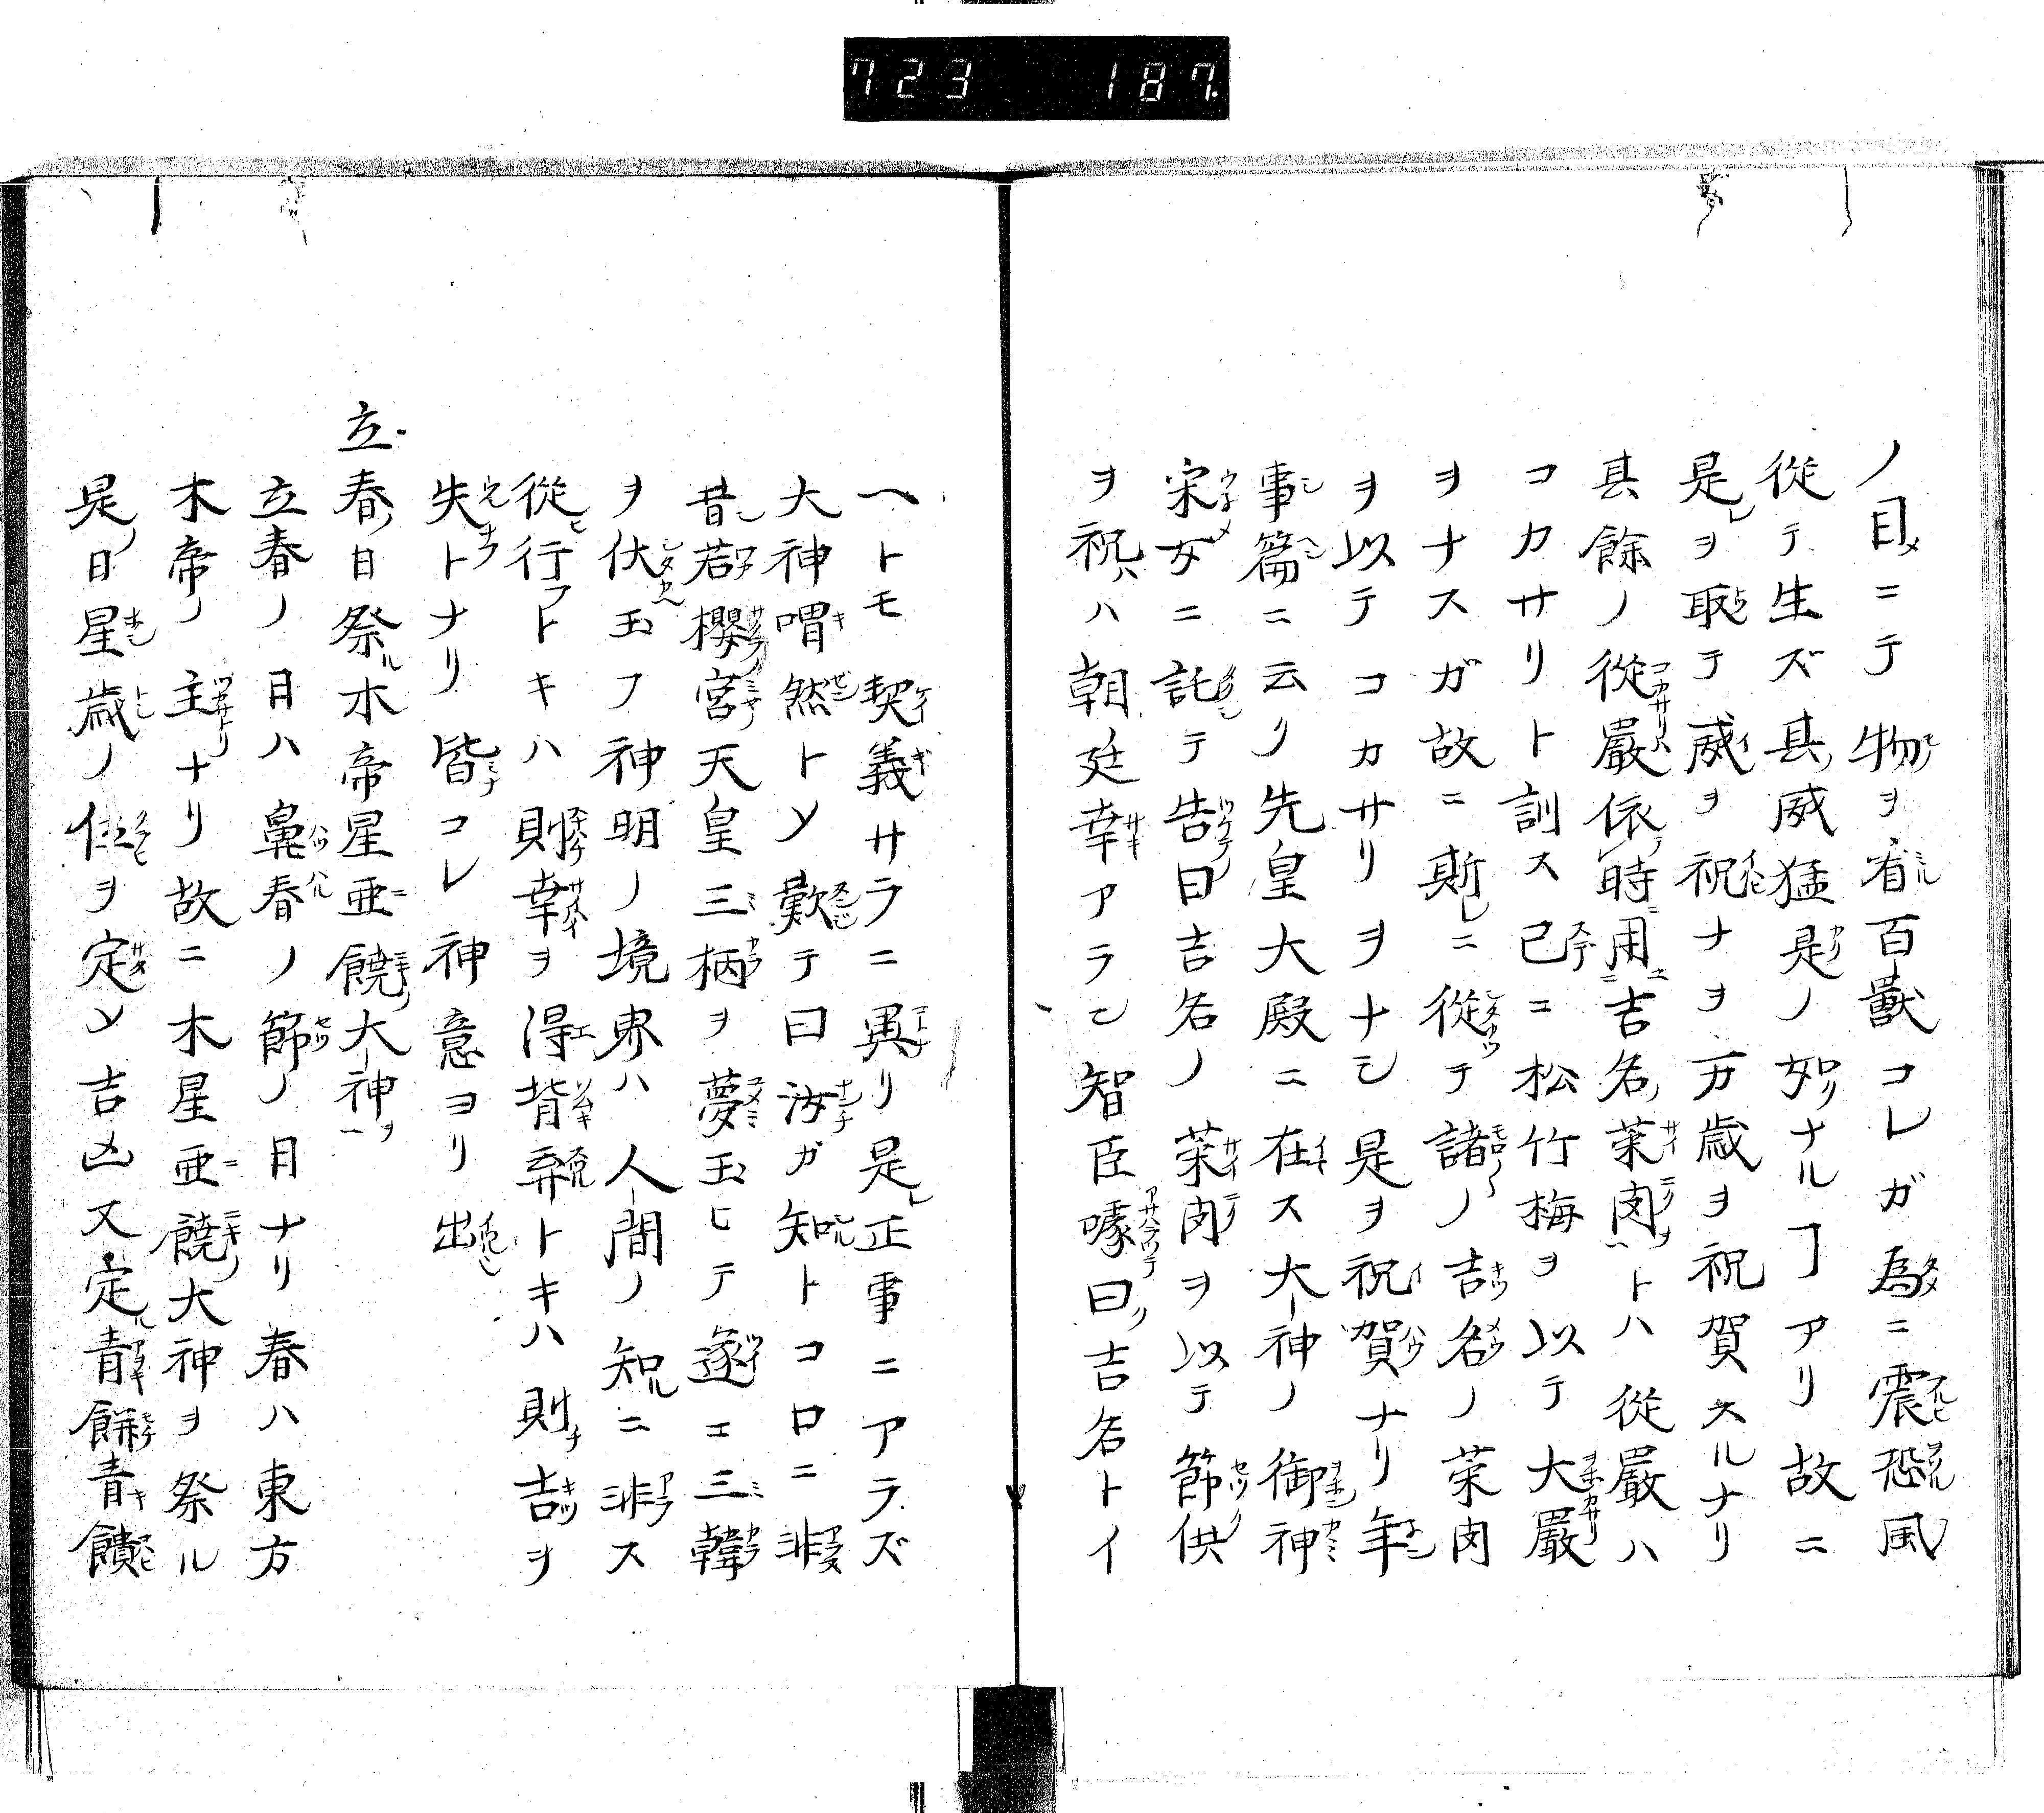 723 187.
ノ目ニテ物ヲ看百獸コレガ為ニ震恐風
從テ生ズ其威猛是ノ如ナルヿアリ故ニ
是ヲ取テ威ヲ祝ナヲ万歳ヲ祝賀スルナリ
其餘ノ從嚴依時用吉名菜肉トハ從嚴ハ
コカサリト訓ス已ニ松竹梅ヲ以テ大嚴
ヲナスガ故ニ斯ニ從テ諸ノ吉名ノ菜肉
ヲ以テコカサリヲナシ是ヲ祝賀ナリ年
事篇ニ云リ先皇大殿ニ在ス大神ノ御神
宋女ニ託テ告曰吉名ノ菜肉ヲ以テ節供
ヲ祝ハ朝廷幸アラン智臣噱曰吉名トイ
ヘトモ契義サラニ異リ是正事ニアラズ
大神喟然トメ歎テ曰汝ガ知トコロニ非
昔若櫻宮天皇三柄ヲ夢玉ヒテ遂ニ三韓
ヲ伏玉フ神明ノ境界ハ人間ノ知ニ非ス
從行フトキハ則幸ヲ得背弃トキハ則吉ヲ
失トナリ皆コレ神意ヨリ出
立春日祭木帝星亜饒大神
立春ノ日ハ鼻春ノ節ノ日ナリ春ハ東方
木帝ノ主ナリ故ニ木星亜饒大神ヲ祭ル
是日星歳ノ位ヲ定メ吉凶又定青餅青饙